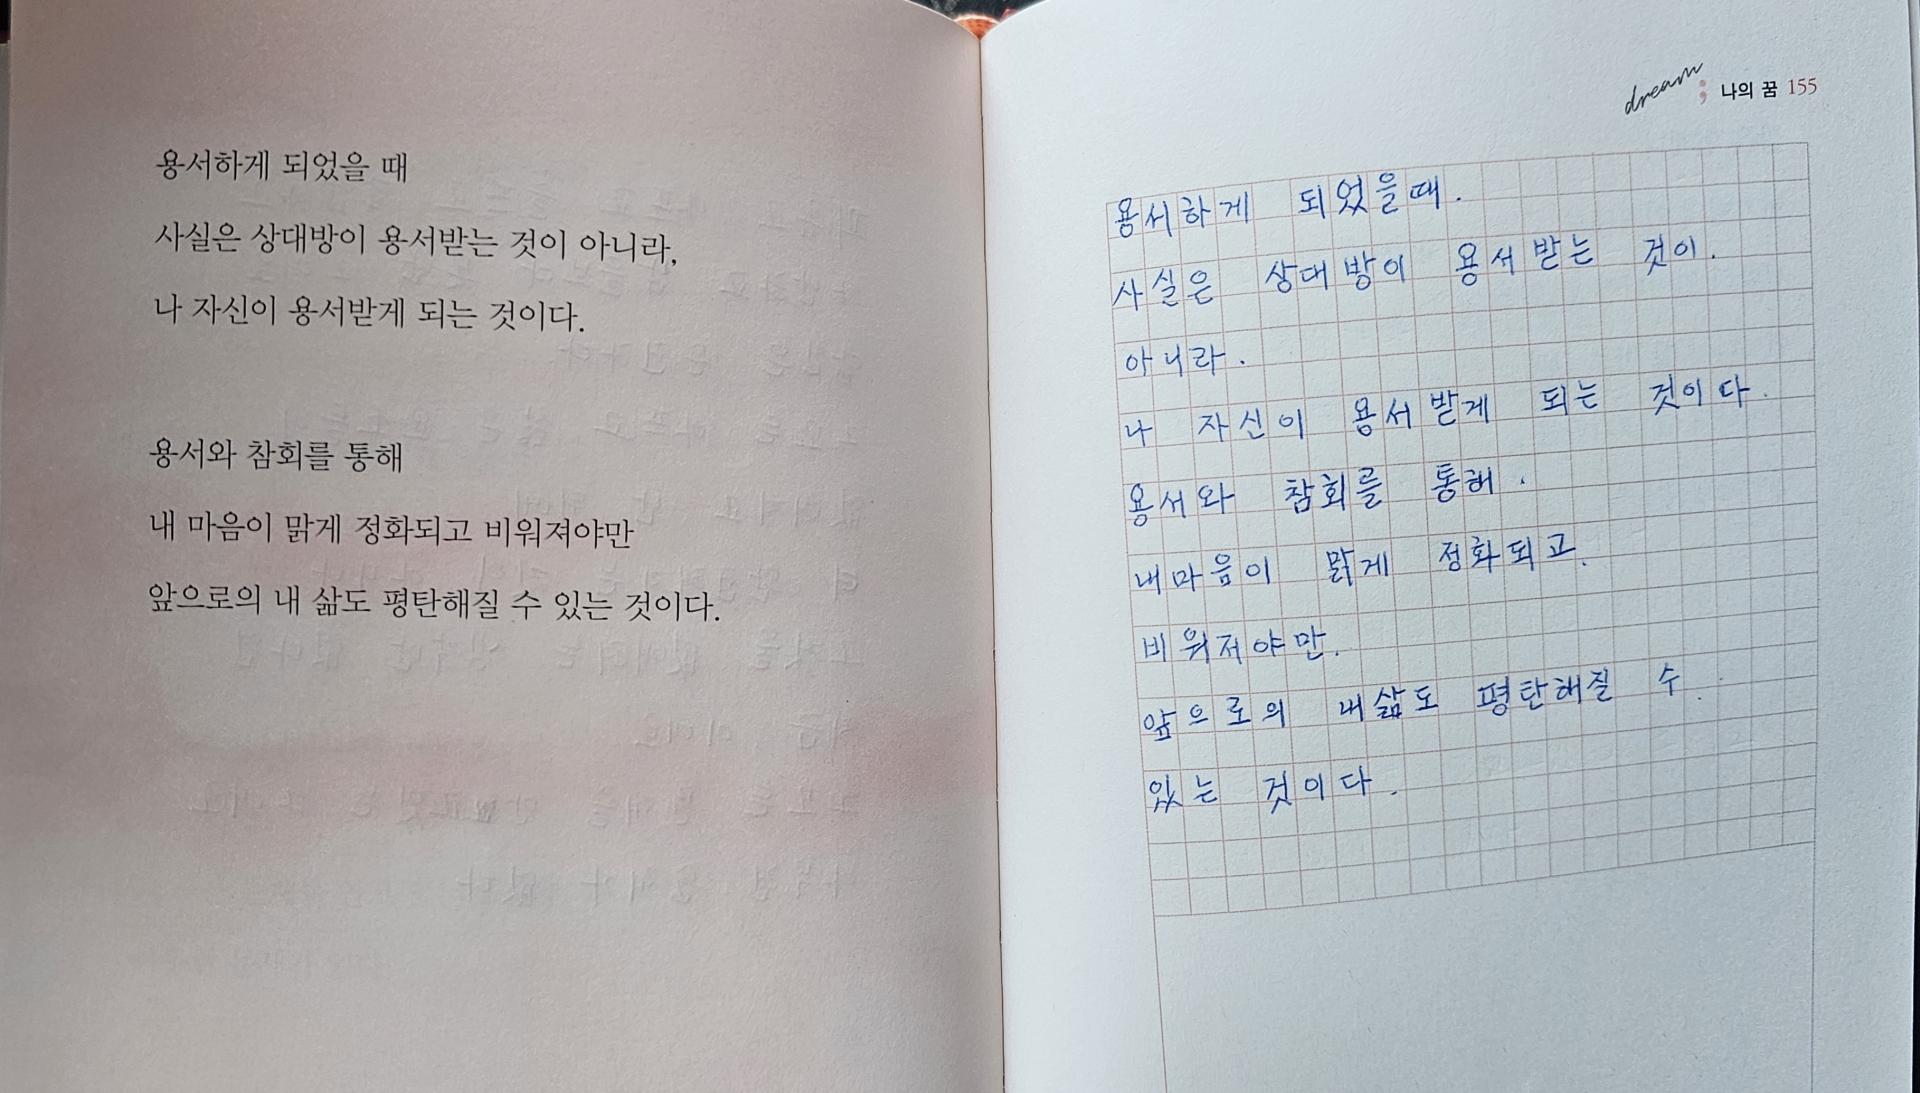 용서하게 되었을 때
사실은 상대방이 용서받는 것이 아니라,
나 자신이 용서받게 되는 것이다.
용서와 참회를 통해
내 마음이 맑게 정화되고 비워져야만
앞으로의 내 삶도 평탄해질 수 있는 것이다.
dream; 나의 꿈 155
용서하게 되었을때.
사실은 상대방이 용서받는 것이.
아니라.
나 자신이 용서받게 되는 것이다.
용서와 참회를 통해.
내마음이 맑게 정화되고.
비워져야만.
앞으로의 내삶도 평탄해질 수.
있는 것이다.